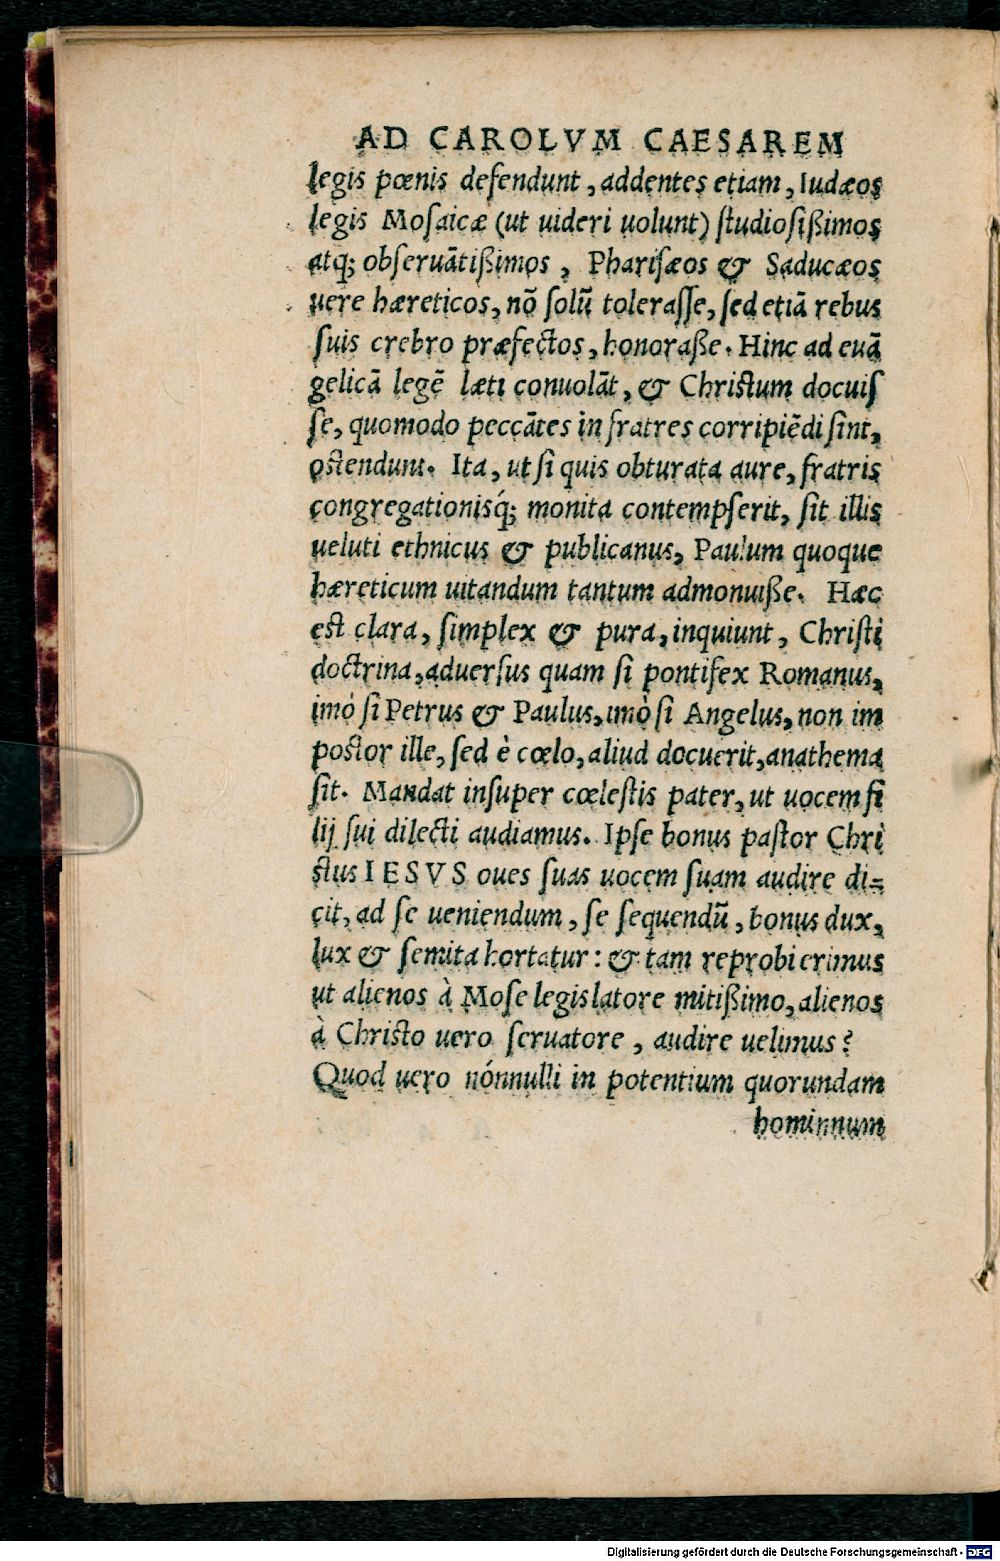 AD CAROLVM CAESAREM
legis pœnis defendunt, addentes etiam, Iudæos
legis Mosaicæ (ut uideri uolunt) studiosißimos
atq; obseruãtißimos, Pharisæos & Saducæos
uere hæreticos, nõ solũ tolerasse, sed etiã rebus
suis crebro præfectos, honoraße. Hinc ad euã
gelicã legẽ læti conuolãt, & Christum docuis
se, quomodo peccãtes in fratres corripiẽdi sint,
ostendunt. Ita, ut si quis obturata aure, fratris
congregationisq́; monita contempserit, sit illis
ueluti ethnicus & publicanus, Paulum quoque
hæreticum uitandum tantum admonuiße. Hæc
est clara, simplex & pura, inquiunt, Christi
doctrina, aduersus quam si pontifex Romanus,
imò si Petrus & Paulus, imò si Angelus, non im
postor ille, sed è cœlo, aliud docuerit, anathema
sit. Mandat insuper cœlestis pater, ut uocem fi
lij sui dilecti audiamus. Ipse bonus pastor Chri
stus IESVS oues suas uocem suam audire di=
cit, ad se ueniendum, se sequendũ, bonus dux,
lux & semita hortatur: & tam reprobi erimus
ut alienos à Mose legislatore mitißimo, alienos
à Christo uero seruatore, audire uelimus?
Quod uero nónnulli in potentium quorundam
hominnum
Digitalisierung gefördert durch die Deutsche Forschungsgemeinschaft - DFG